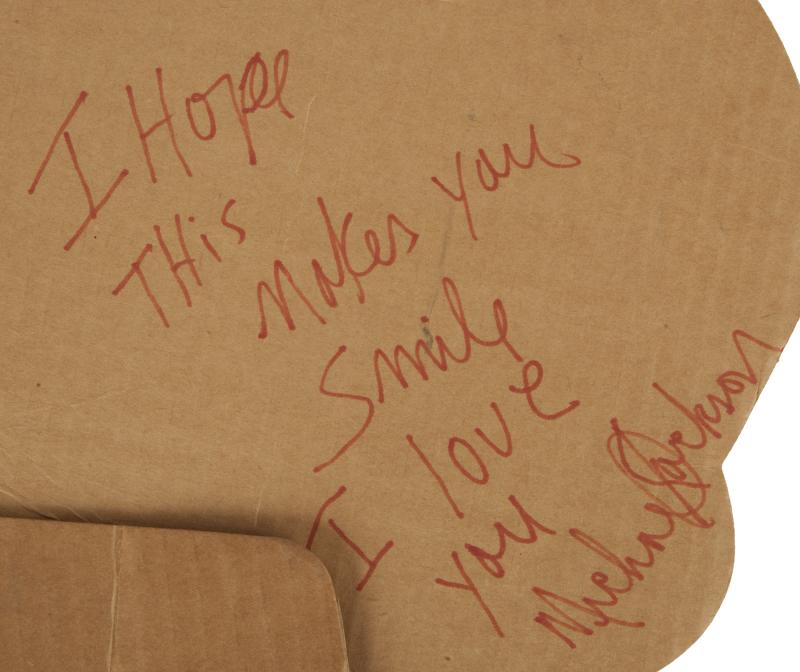 I Hope
THis makes you
Smile
I love
you
Michael Jackson